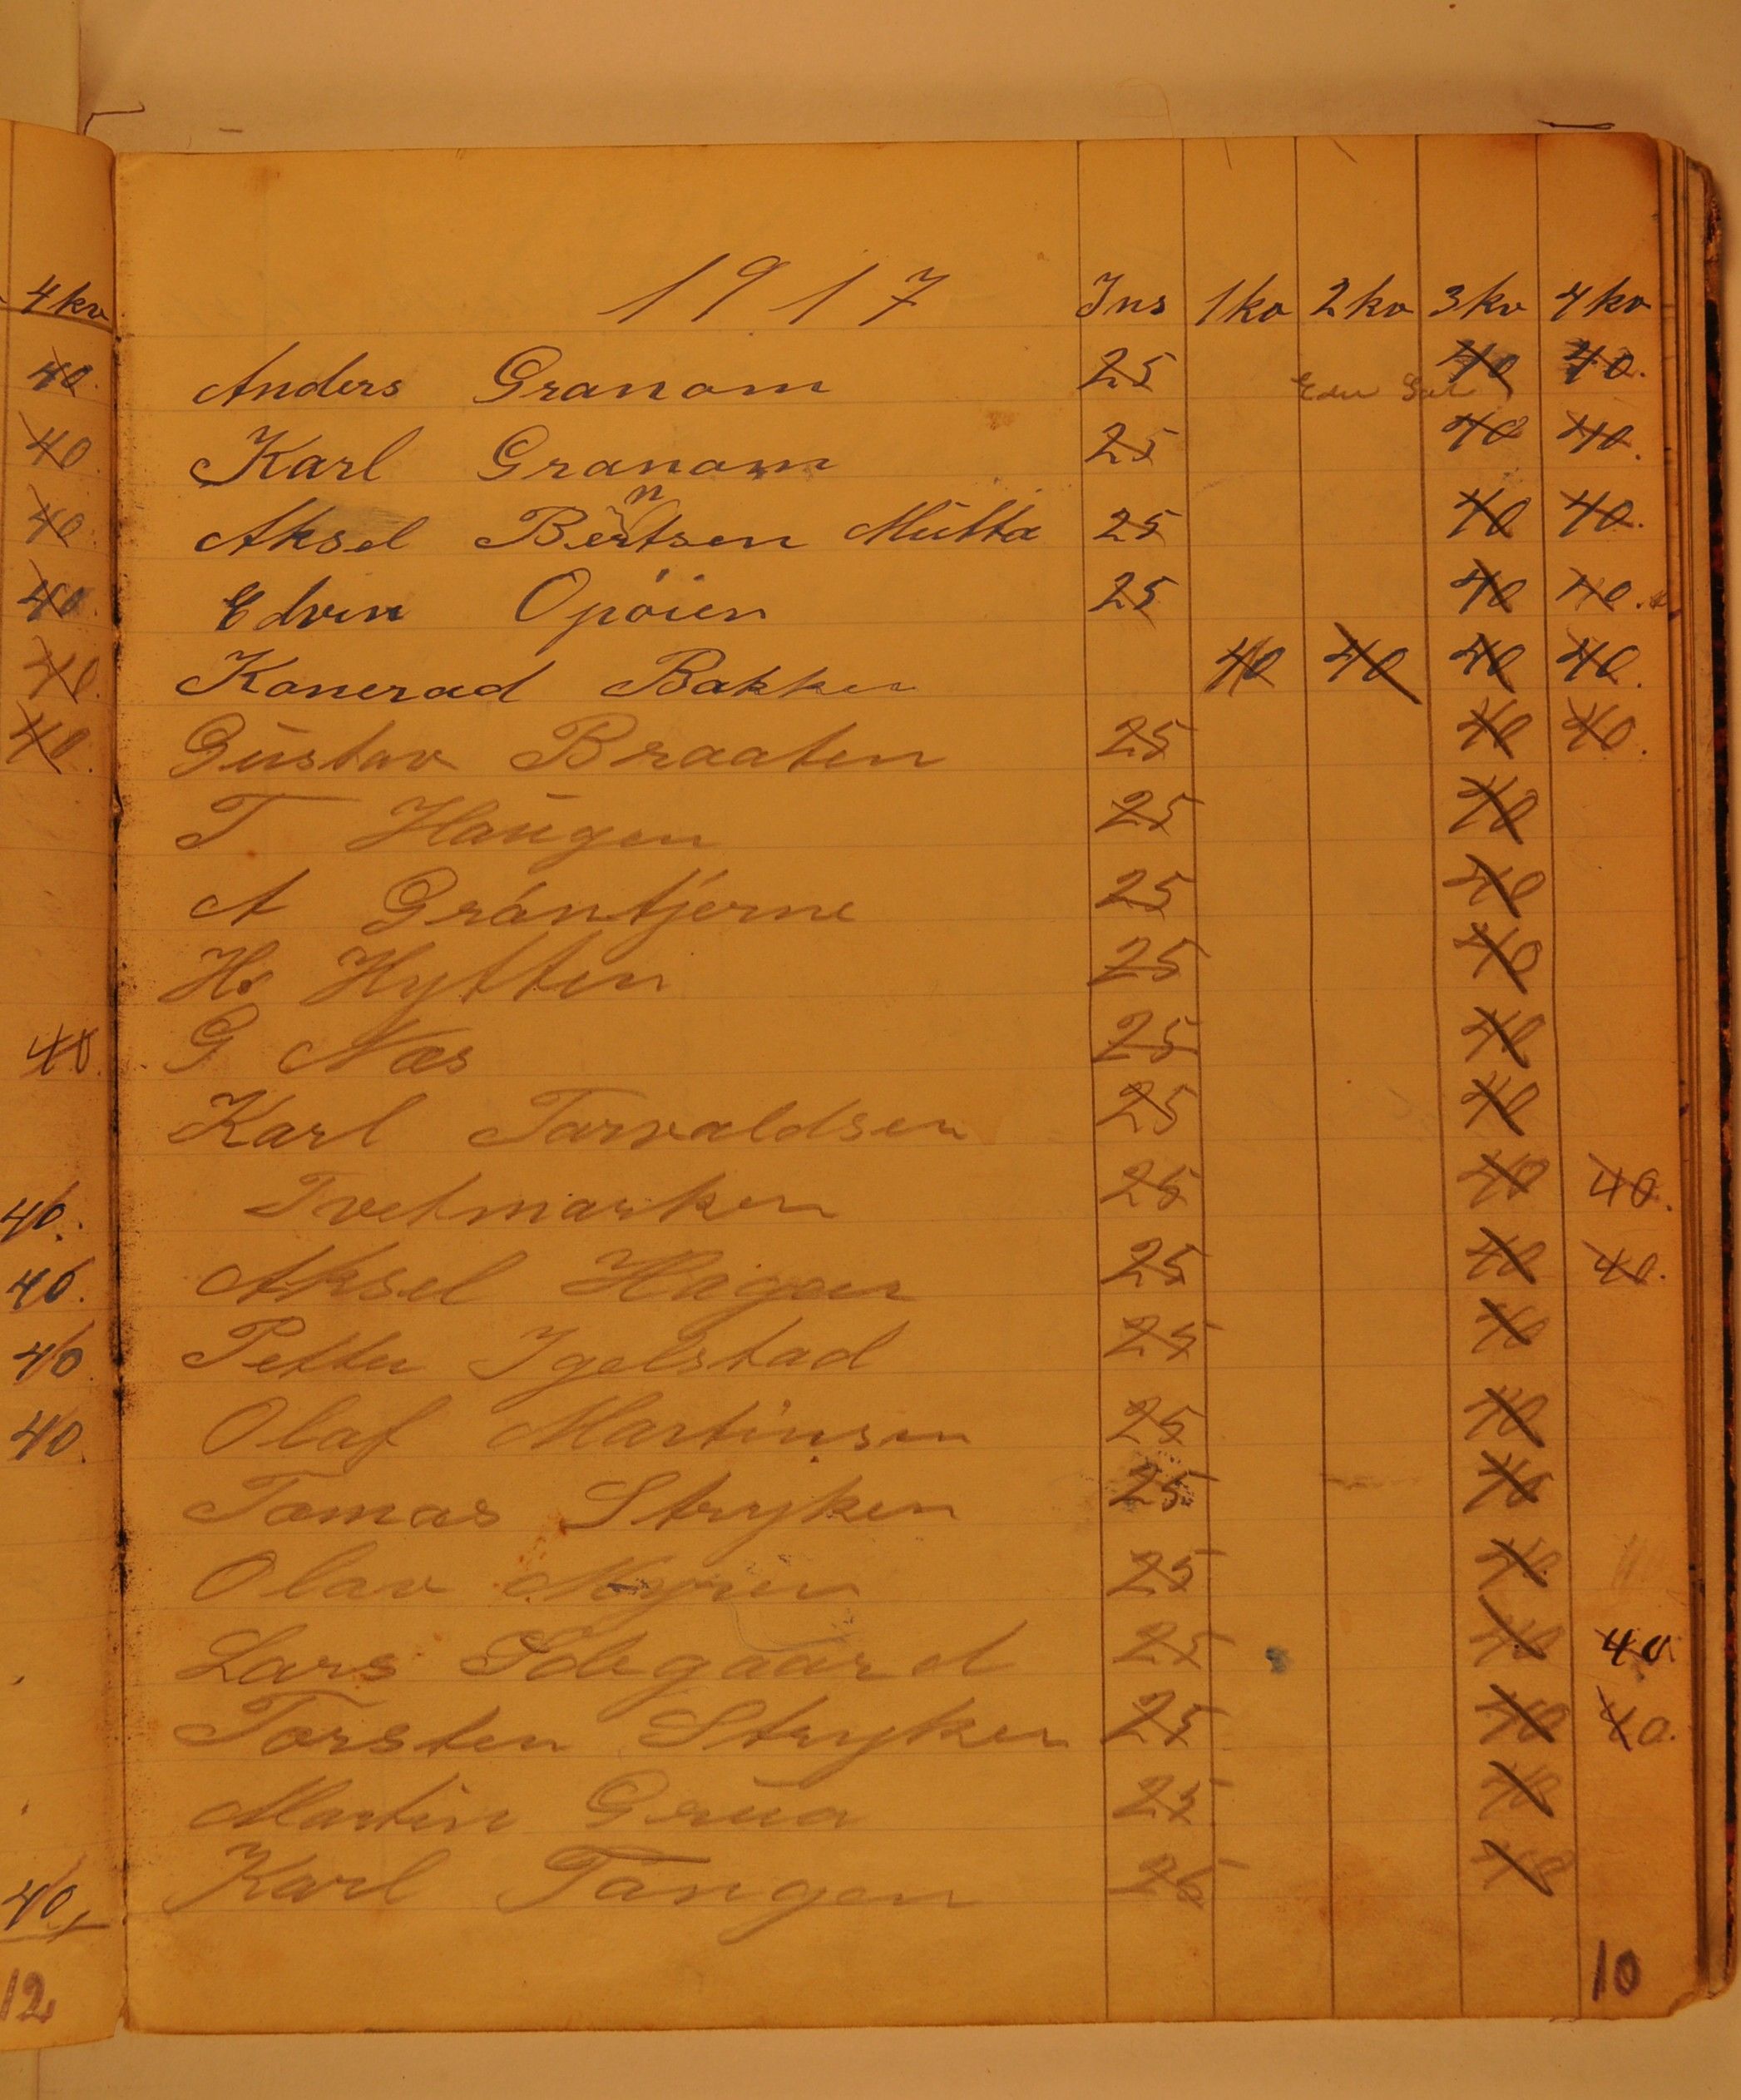 4kv
40.
40
40.
40.
40.
40.
40.
40.
40.
40.
40.
40
12
1917 Ins 1kv 2kv 3kv 4kv
Anders Granom 25 40 40.
Karl Granom 25 40 40.
n
Aksel Bertsen Mutta 25 40 40.
Edvin Opöien 25 40 40.
Konerad Bakken 40 40 40 40.
Gustav Braaten 25 40 40.
T Haugen 25 40
A Gräntjerne 25 40
H. Hytten 25 40
G Næs 25 40
Karl Torvaldsen 25 40
Tvetmarken 25 40 40.
Aksel Hagen 25 40 40.
Petter Igelstad 25 40
Olaf Martinsen 25 40
Tomas Stryken 25 40
Olav Myren 25 40
Lars Ödegaard 25 40 40.
Torsten Stryken 25 40 40.
Martin Grua 25 40
Karl Tangen 25 40
10